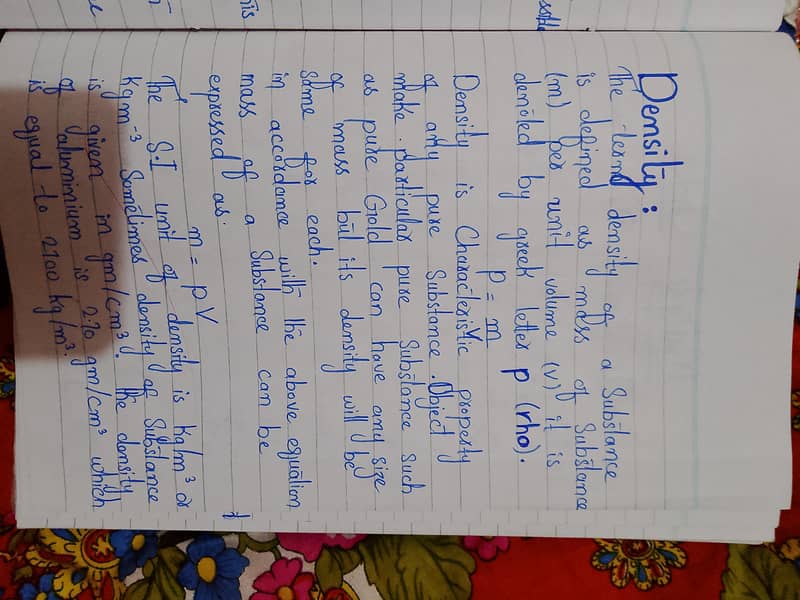 Density :
The term density of a Substance
is defined as mass of Substance
(m) per unit volume (v) it is
denoted by greek letter p (rho).
P = m
V
Density is Characteristic property
of any pure Substance. Object
make particular pure Substance such
as pure Gold can have any size
of mass but its density will be
same for each.
in accordance with the above equation
mass of a Substance can be
expressed as.
m = p V
The S.I unit of density is Kg/m³ or
Kgm-³ Sometimes density of Substance
is given in gm/cm³. The density
of aluminium is 2.70 gm/cm³ which
is equal to 2700 kg/m³.